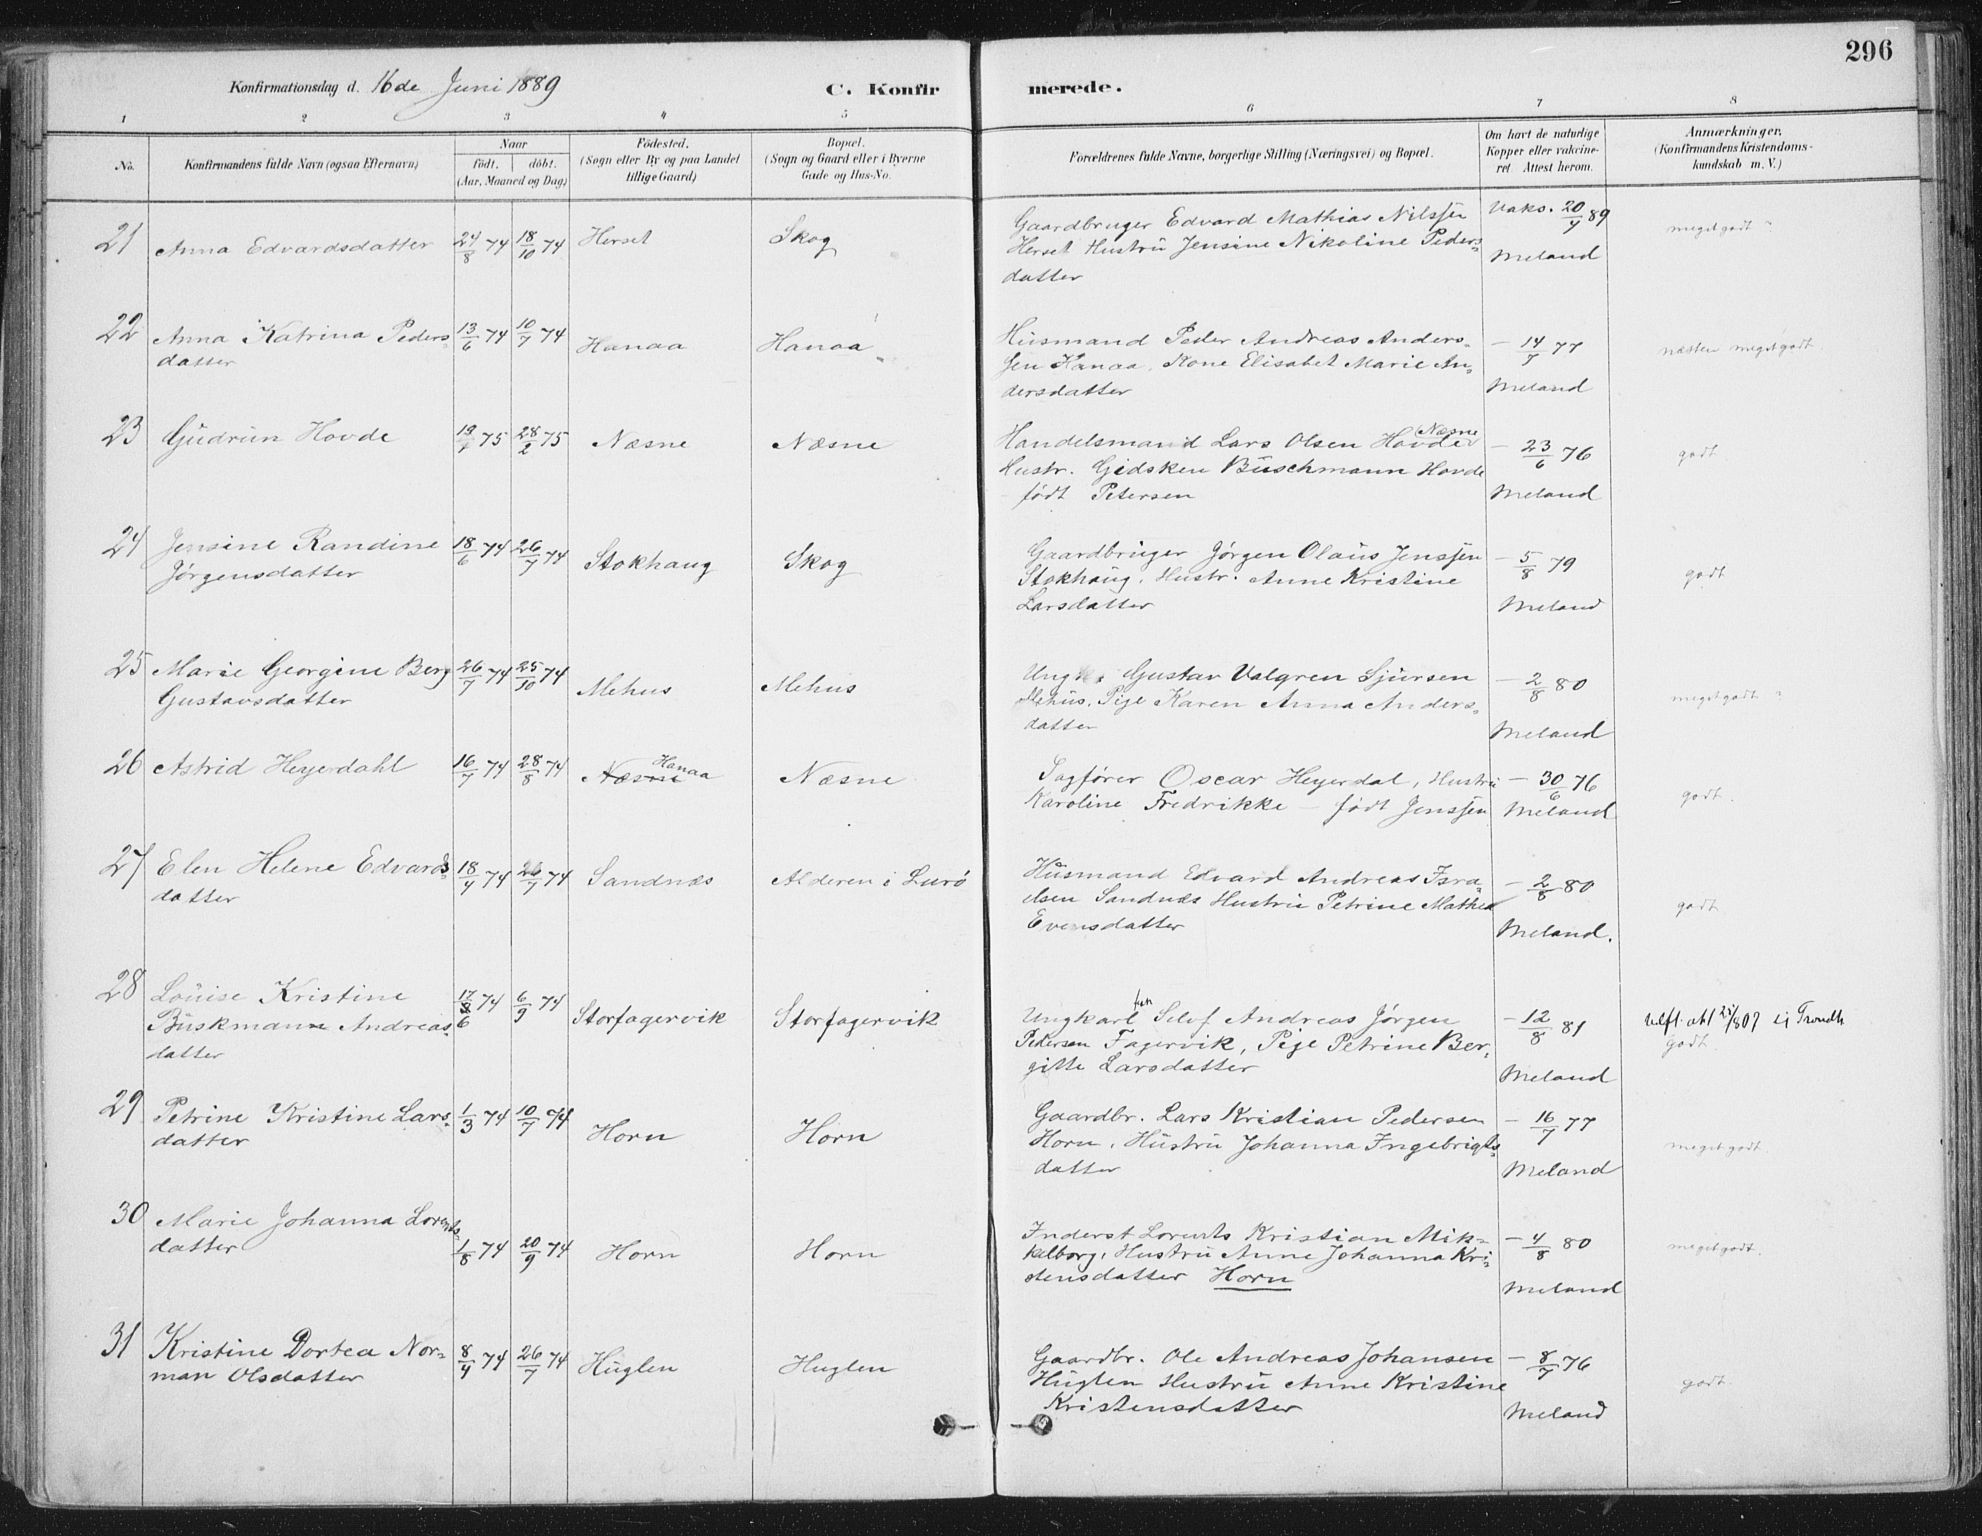 296
Konfirmationsdag d. 16de Juni 1889 C. Konfir merede.
1 2 3 4 5 6 7 8
No. Konfirmandens fulde Navn (ogsaa Efternavn) Naar födt. döbt. (Aar, Maaned og Dag) Födested. (Sogn eller By og paa Landet tillige Gaard) Bopæl. (Sogn og Gaard eller i Byerne Gade og Hus-No. Forældrenes fulde Navne, borgerlige Stilling (Næringsvei) og Bopæl. Om havt de naturlige Kopper eller vakcineret. Attest herom. Anmærkninger. (Konfirmandens Kristendomskundskab m. V.)
21 Anna Edvardsdatter 24/8 74 18/10 74 Herset Skog Gaardbruger Edvard Mathias Nilssen Vaks. 20/4 89 megetgodt
Herset Hustru Jensine Nikoline Peders-
datter Meland
22 Anna Katrina Peders- 13/6 74 10/7 74 Hanaa Hanaa Husmand Peder Andreas Anders- – 14/7 77 næsten megetgodt.
datter sen Hanaa, Kone Elisabet Marie An-
dersdatter Meland
23 Gudrun Hovde 75 28/2 75 Næsne Næsne Handelsmand Lars Olsen Hovde Næsne – 23/6 76 godt
Hustr. Gidsken Buschmann Hovde
født Petersen Meland
24 Jensine Randine 18/6 74 26/7 74 Stokhaug Skog Gaardbruger Jørgen Olaus Jenssen – 5/8 79 godt
Jørgensdatter Stokhaug, Hustr. Anne Kristine
Larsdatter Meland
25 Marie Georgine Berg 26/7 74 25/10 74 Mehus Mehus Gustav Valgren Sjursen – 2/8 80 megetgodt
Gustavsdatter Mehus, Pige Karen Anna Anders-
datter Meland
26 Astrid Heyerdahl 16/7 74 28/8 74 Næsne Hanaa Næsne Sagfører Oscar Heyerdal, Hustru – 30/6 76 godt.
Karoline Fredrikke – født Jenssen Meland
27 Elen Helene Edvards- 18/4 74 26/7 74 Sandnæs Alderen i Lurö Husmand Edvard Andreas Isra- – 2/8 80 godt
datter elsen Sandnæs Hustru Petrine Mathea
Evensdatter Meland.
28 Louise Kristine 17/6 74 6/9 74 Storfagervik Storfagervik Ungkarl Andreas Jørgen – 12/8 81 Trondh
Buskmann Andreas- Pedersen Fagervik, Pige Petrine Ber- godt.
datter gitte Larsdatter Meland
29 Petrine Kristine Lars- 1/3 74 10/7 74 Horn Horn Gaardbr. Lars Kristian Pedersen – 16/7 77 megetgodt.
datter Horn, Hustru Johanna Ingebrigts-
datter Meland
30 Marie Johanna Lorents- 1/8 74 20/9 74 Horn Horn Inderst Lorents Kristian Mik- – 4/8 80 megetgodt.
datter kelborg, Hustru Anne Johanna Kri-
stensdatter Horn Meland
31 Kristine Dortea Nor- 8/4 74 26/7 74 Huglen Huglen Gaardbr. Ole Andreas Johansen – 8/7 76 godt.
man Olsdatter Huglen Hustru Anne Kristine
Kristensdatter Meland